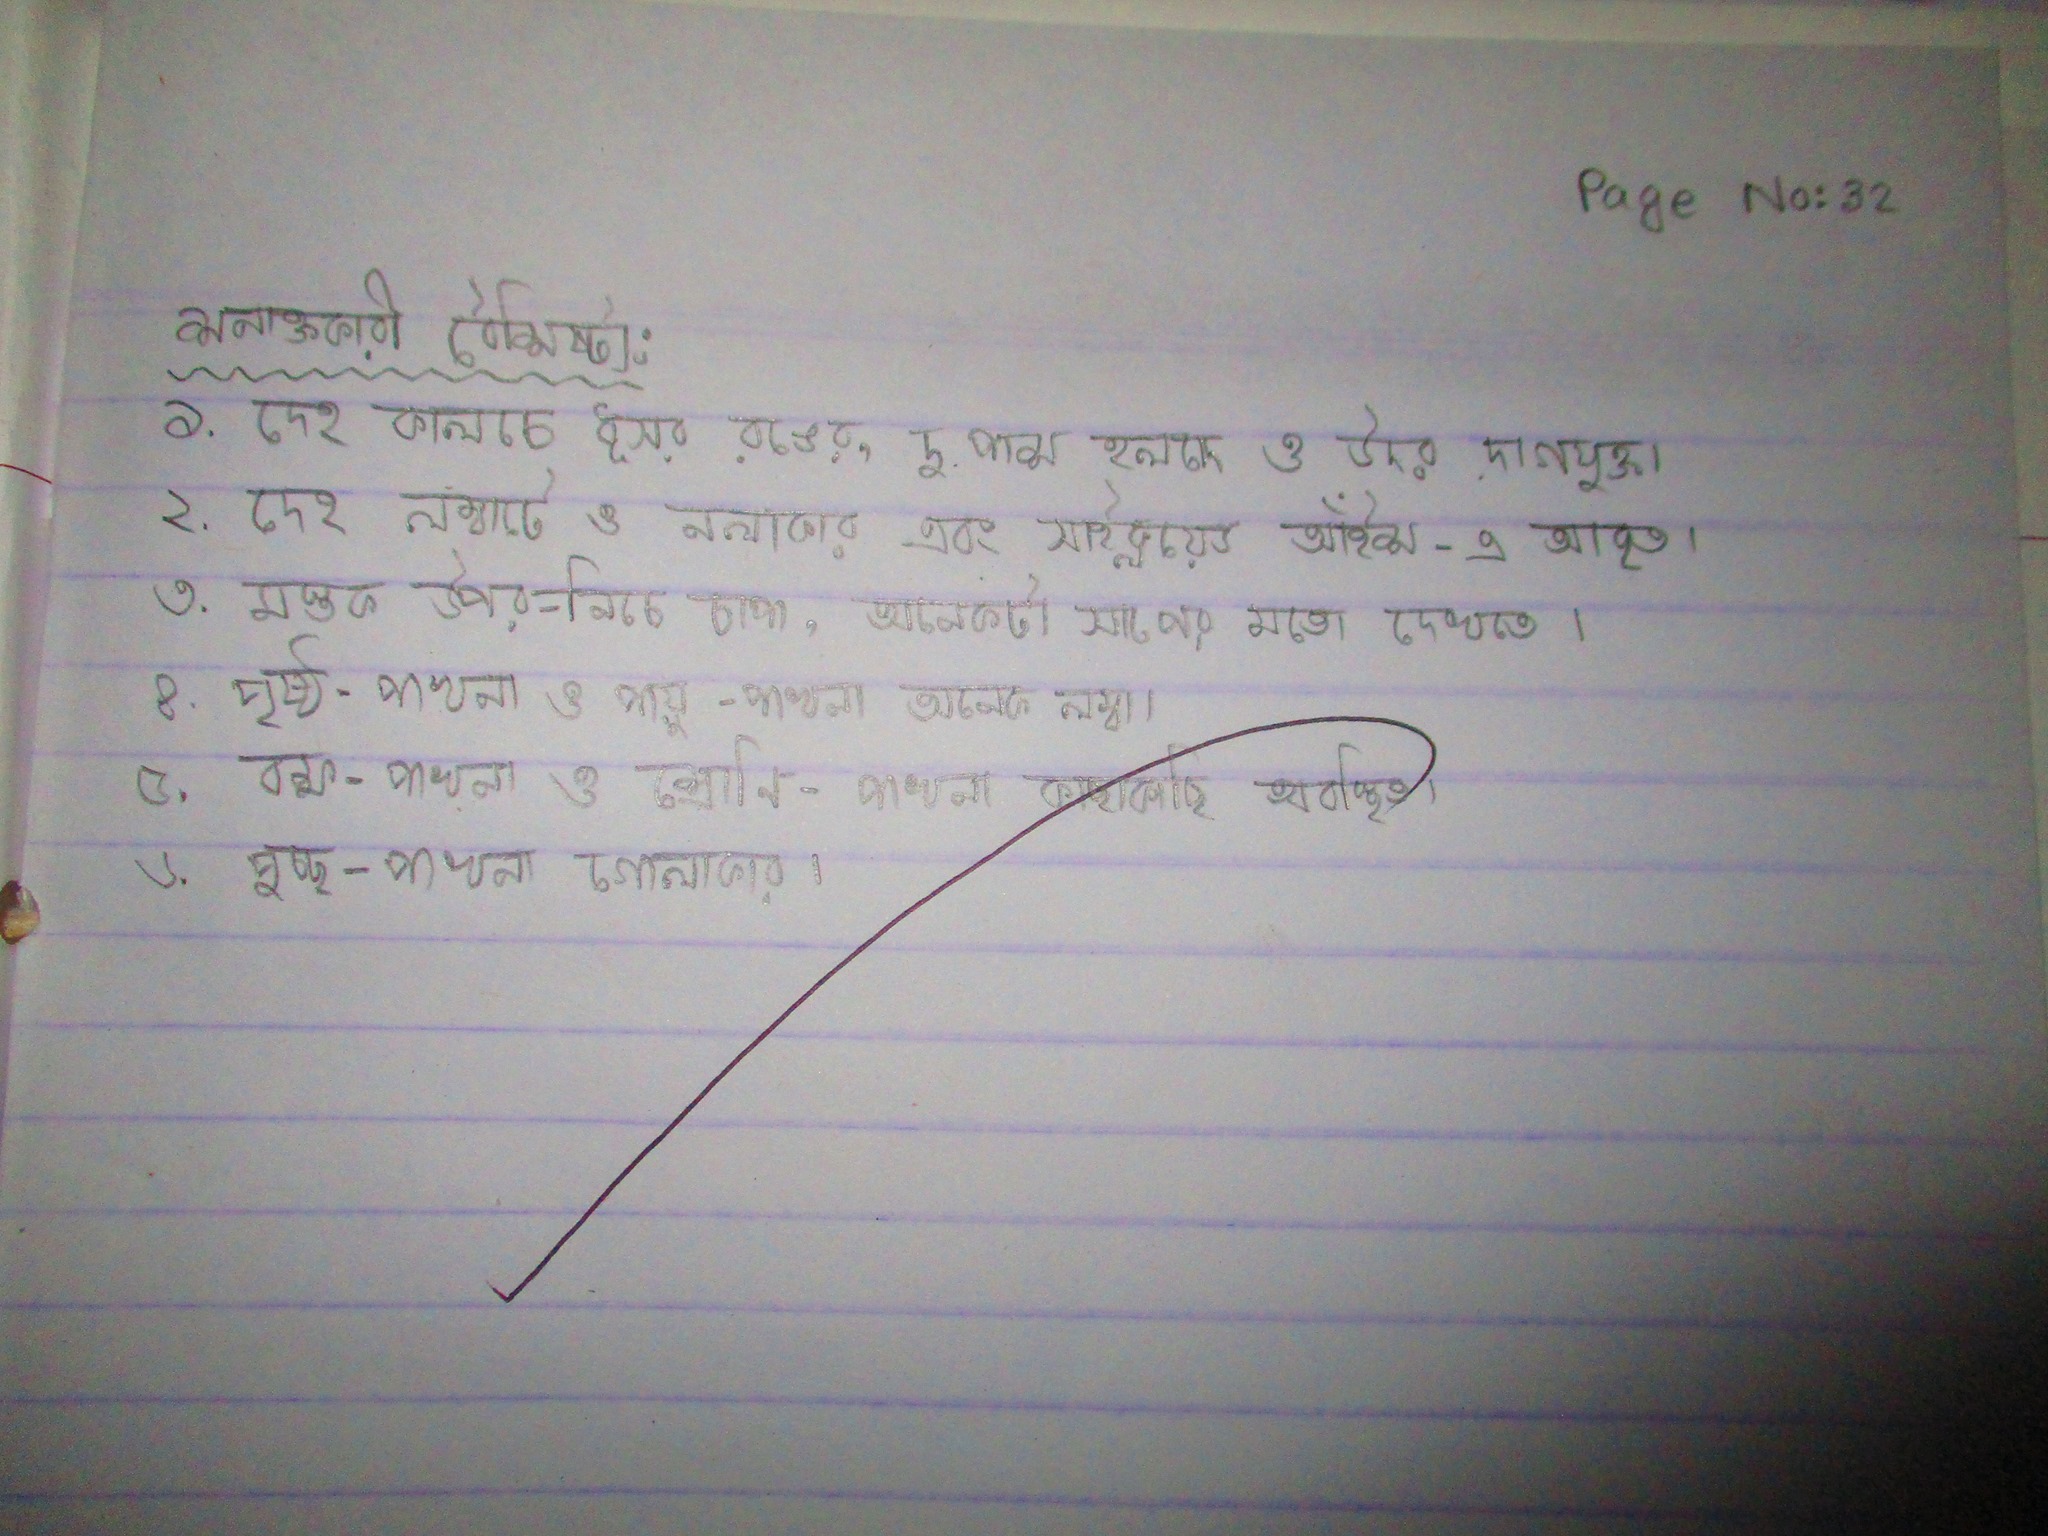 Page No:32
শনাক্তকারী বৈশিষ্ট্য:
১. দেহ কালচে ধূসর রঙের, দু পাশ হলদে ও উদর দাগযুক্ত।
২. দেহ লম্বাটে ও নলাকার এবং সাইক্লয়েড আঁইশ-এ আবৃত।
৩. মস্তক উপর-নিচে চাপা, অনেকটা সাপের মতো দেখতে।
৪. পৃষ্ঠ-পাখনা ও পায়ু-পাখনা অনেক লম্বা।
৫. বক্ষ-পাখনা ও শ্রোণি-পাখনা কাছাকাছি অবস্থিত।
৬. পুচ্ছ-পাখনা গোলাকার।